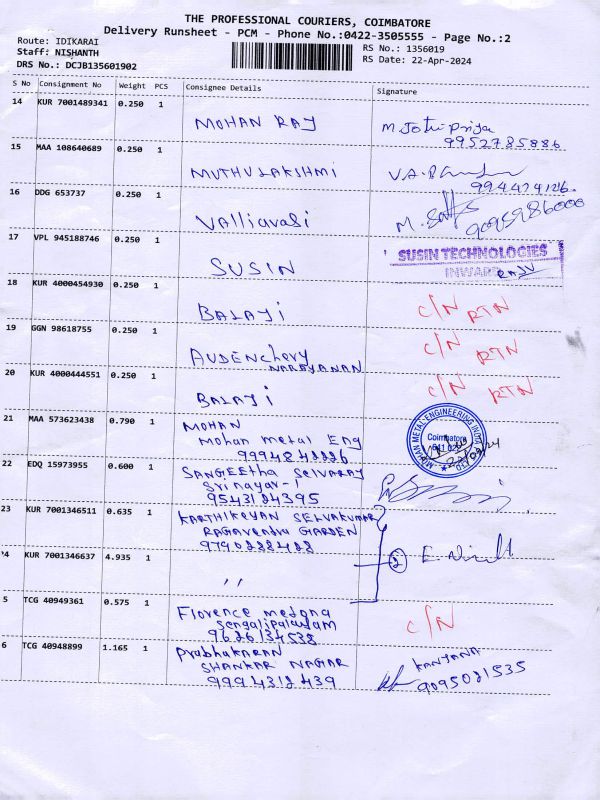 THE PROFESSIONAL COURIERS, COIMBATORE
Delivery Runsheet - PCM - Phone No.:0422-3505555 - Page No.:2
Route: IDIKARAI
Staff: NISHANTH
DRS No.: DCJB135601902
RS No.: 1356019
RS Date: 22-Apr-2024
S No Consignment No Weight PCS Consignee Details Signature
14 KUR 7001489341 0.250 1
MOHAN RAJ M.Jothi Priya
9952785886
15 MAA 108640689 0.250 1
MUTHULAKSHMI V.A.
16 DDG 653737 0.250 1
Valliavasi M.
9095986000
17 VPL 945188746 0.250 1
SUSIN SUSIN TECHNOLOGIES
INWARD
18 KUR 4000454930 0.250 1
BALAJI C/N RTN
19 GGN 98618755 0.250 1
AUDENChery C/N RTN
NARAYANAN
20 KUR 4000444551 0.250 1
BALAJI C/N RTN
21 MAA 573623438 0.790 1 MOHAN
Mohan metal Eng
9994842226
MOHAN METAL ENGINEERING INDIA LTD
Coimbatore
22 EDQ 15973955 0.600 1 SANGEEtha SELVARAJ
Srinagar-1
9543124395
23 KUR 7001346511 0.635 1 KARTHIKEYAN SELVAKUMAR
RAGAVendra GARDEN
9790222422
4 KUR 7001346637 4.935 1 2 E.
,,
5 TCG 40949361 0.575 1 Florence medona C/N
Sengalipalayam
9626134538
6 TCG 40948899 1.165 1 Prabhakaran
SHANKAR NAGAR KANJANA
9994312439 9095021535